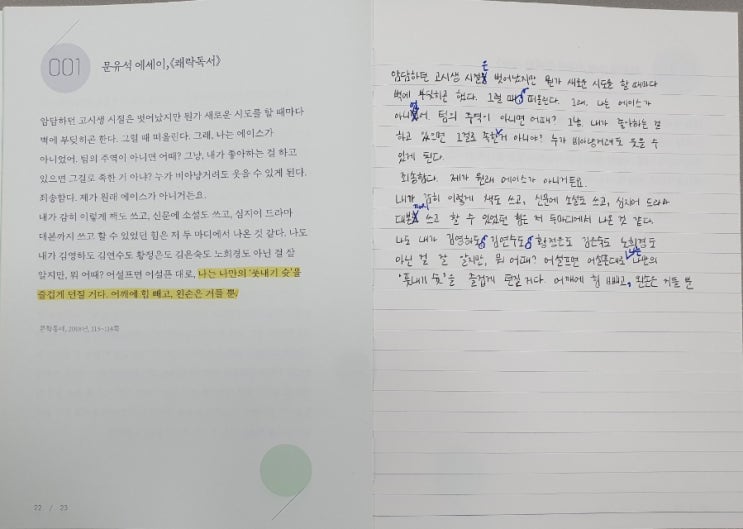 001 문유석 에세이, 《쾌락독서》
암담하던 고시생 시절은 벗어났지만 뭔가 새로운 시도를 할 때마다
벽에 부딪히곤 한다. 그럴 때 떠올린다. 그래, 나는 에이스가
아니었어. 팀의 주역이 아니면 어때? 그냥, 내가 좋아하는 걸 하고
있으면 그걸로 족한 거 아냐? 누가 비아냥거려도 웃을 수 있게 된다.
죄송합니다. 제가 원래 에이스가 아니거든요.
내가 감히 이렇게 책도 쓰고, 신문에 소설도 쓰고, 심지어 드라마
대본까지 쓰고 할 수 있었던 힘은 저 두 마디에서 나온 것 같다. 나도
내가 김영하도 김연수도 황정은도 김은숙도 노희경도 아닌 걸 잘
알지만, 뭐 어때? 어설프면 어설픈 대로, 나는 나만의 '풋내기 슛'을
즐겁게 던질 거다. 어깨에 힘 빼고, 왼손은 거들 뿐.
문학동네, 2018년, 113~114쪽
22 / 23
암담하던 고시생 시절은 벗어났지만 뭔가 새로운 시도를 할 때마다
벽에 부딪히곤 했다. 그럴 때 떠올린다. 그래, 나는 에이스가
아니었어. 팀의 주역이 아니면 어때? 그냥, 내가 좋아하는 걸
하고 있으면 그걸로 족한 거 아니야? 누가 비아냥거려도 웃을 수
있게 된다.
죄송합니다. 제가 원래 에이스가 아니거든요.
내가 감히 이렇게 책도 쓰고, 신문에 소설도 쓰고, 심지어 드라마
대본까지 쓰고 할 수 있었던 힘은 저 두마디에서 나온 것 같다.
나도 내가 김영하도 김연수도 황정은도 김은숙도 노희경도
아닌 걸 잘 알지만, 뭐 어때? 어설프면 어설픈대로 나는 나만의
'풋내기 슛'을 즐겁게 던질 거다. 어깨에 힘 빼고, 왼손은 거들 뿐